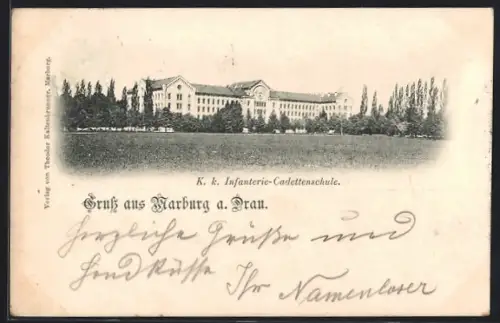 Verlag von Theodor Kaltenbrunner, Marburg.
K. k. Infanterie-Cadettenschule.
Gruß aus Marburg a. Drau.
Herzliche Grüße und
Handküsse Ihr Namenloser